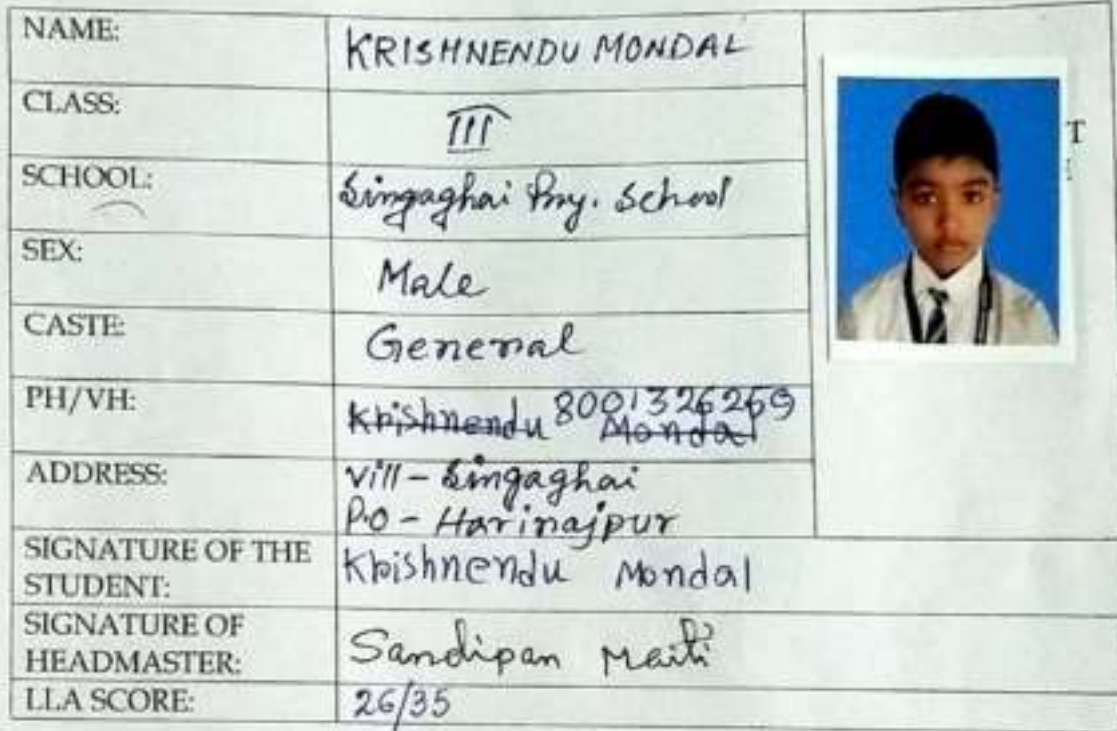 NAME: KRISHNENDU MONDAL
CLASS: III
SCHOOL: Singaghai Pry. School
SEX: Male
CASTE: General
PH/VH: Krishnendu Mondal 8001326269
ADDRESS: Vill - Singaghai
P.O - Harirajpur
SIGNATURE OF THE STUDENT: Krishnendu Mondal
SIGNATURE OF HEADMASTER: Sandipan Maiti
LLA SCORE: 26/35
T